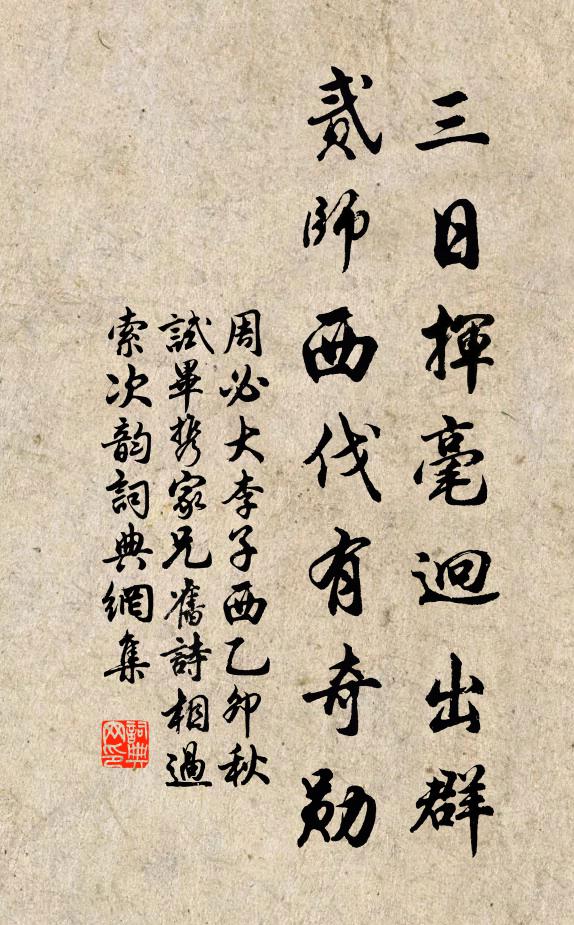 三日揮毫迥出群
貳師西伐有奇勛
周必大李子西乙卯秋
試畢携家兄舊詩相過
索次韵詞典網集
詞典网印